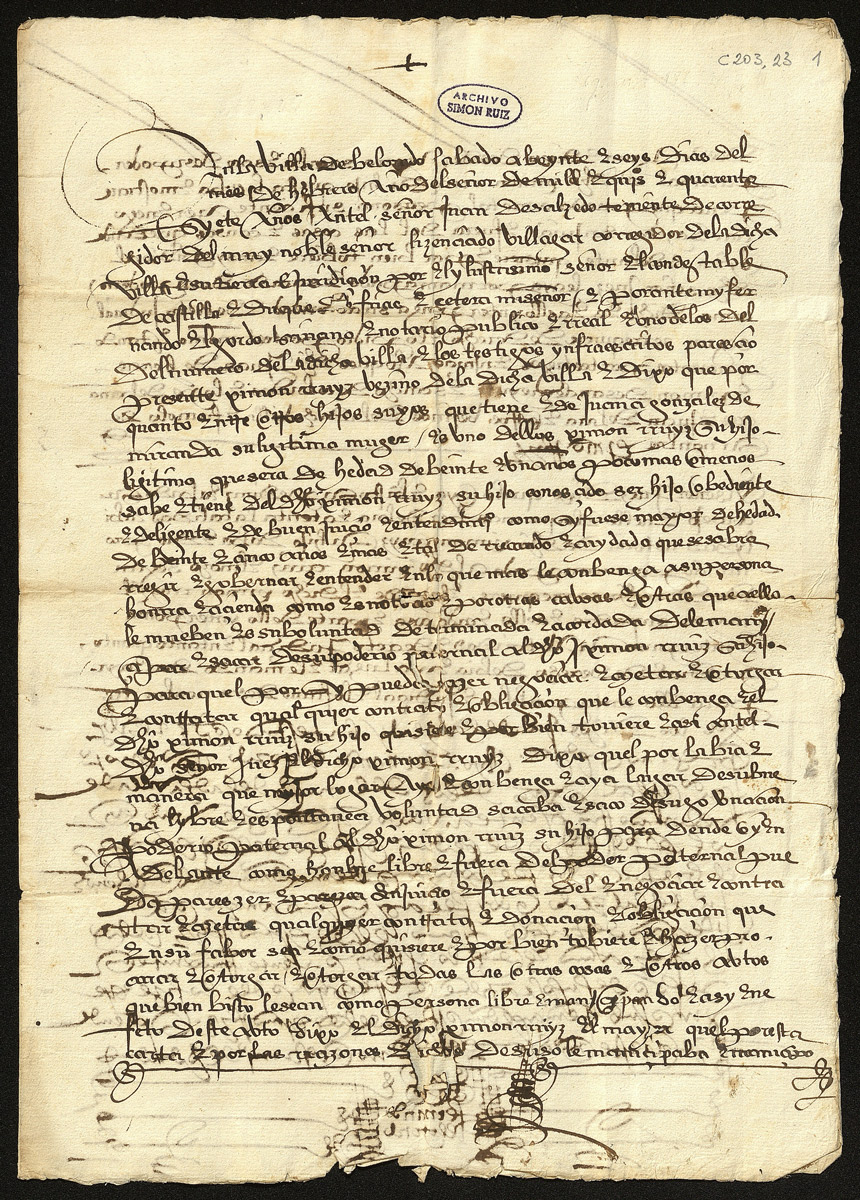 C 203, 23 1
+
ARCHIVO
SIMON RUIZ
En la Villa de belorado sabado a beynte e seys dias del
mes de hebrero Año del señor de mill e quis e quarenta
e syete Años Antel señor Juan de salzedo teniente de corre
gidor del muy noble señor lizenciado Villagar corregidor de la dicha
Villa e su tierra e juridiçion por el ylustrissimo señor el condestable
de castilla e duque de frias e cetera mi señor e por ante my fer
nando escrivano e notario publico e Real e uno de los del
del numero de la dicha Villa e los testigos ynfraescritos paresçio
presente ximon rruyz vezino de la dicha Villa e dixo que por
quanto entre otros hijos suyos que tiene e de Juana gonzalez de
miranda su ligitima muger es uno dellos ximon rruyz su hijo
ligitimo que sera de hedad de beinte e un años poco mas o menos
sabe e tiene del dho ximon rruyz su hijo conosçido ser hijo obediente
e deligente e de buen juicio e entendimito como sy fuese mayor de hedad
de beinte e çinco años e mas e tal de rrecaudo e cuydado que se sabra
rregir e gobernar e entender en lo que mas le conbenga a su persona
honrra e açienda como es notorio e por otras cabsas e otras que a ello
le mueben es su boluntad determinada e acordada de le mançi
par e sacar de su poderio paternal al dho ximon rruiz su hijo
para quel por sy pueda e negoçiar e açetar e otorgar
e contratar qual quier contrato e obligaçion que le conbenga e el
dho ximon rruiz su hijo quisiere e por bien toviere e asi antel
dho señor el dicho ximon rruyz dixo quel por la bia e
manera que mejor lugar aya e conbenga e aya lugar de su bue
na lybre e espontanea voluntad sacaba e saco
poderio paternal al dho ximon rruiz su hijo para dende oy en
adelante como honbre libre e fuera del poder paternal pue
da paresçer e paresca en juiçio e fuera del e negoçiar e contra
tar e açetar qualquyer contrato e donaçion e obligaçion que
en su fabor sea e como quisiere e por bien tobiere e hazer pro
curar e otorgar e otorgar todas las otras cosas e otros abtos
que bien bisto le sean como persona libre e mançipado e asy
deste abto dixo el dicho ximon rruyz el mayor quel por esta
carta e por las rrazones dichas de suso le mançipaba e mançipo